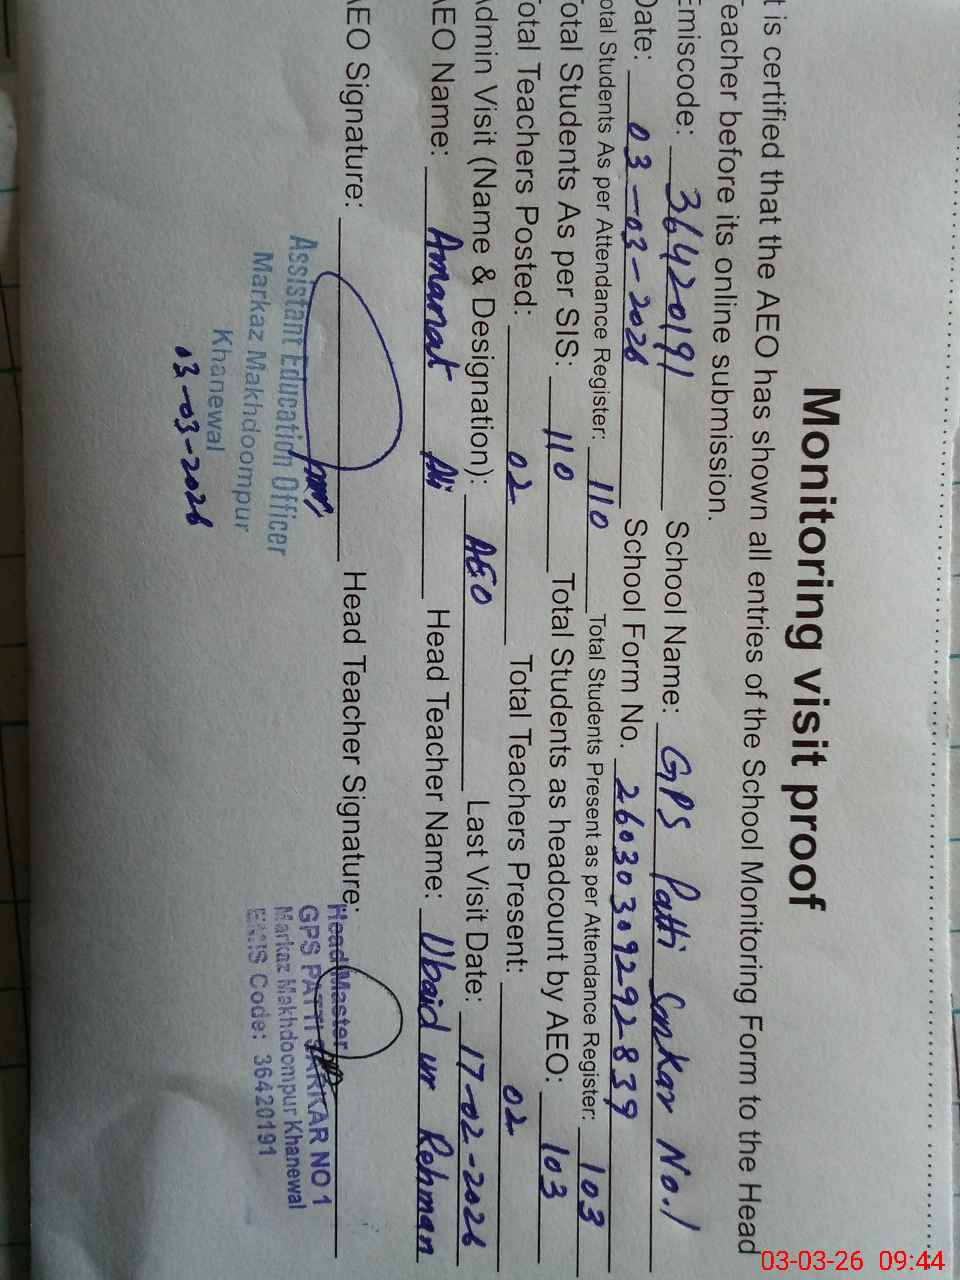 Monitoring visit proof
t is certified that the AEO has shown all entries of the School Monitoring Form to the Head
eacher before its online submission.
Emiscode: 36420191 School Name: GPS Patti Sarkar No.1
Date: 03-03-2026 School Form No. 2603030929 2839
otal Students As per Attendance Register: 110 Total Students Present as per Attendance Register: 103
otal Students As per SIS: 110 Total Students as headcount by AEO: 103
otal Teachers Posted: 02 Total Teachers Present: 02
Admin Visit (Name & Designation): AEO Last Visit Date: 17-02-2026
AEO Name: Amanat Ali Head Teacher Name: Ubaid ur Rehman
AEO Signature: Head Teacher Signature:
Assistant Education Officer
Markaz Makhdoompur
Khanewal
03-03-2026
Head Master
GPS PATTI SARKAR NO 1
Markaz Makhdoompur Khanewal
EMIS Code: 36420191
03-03-26 09:44